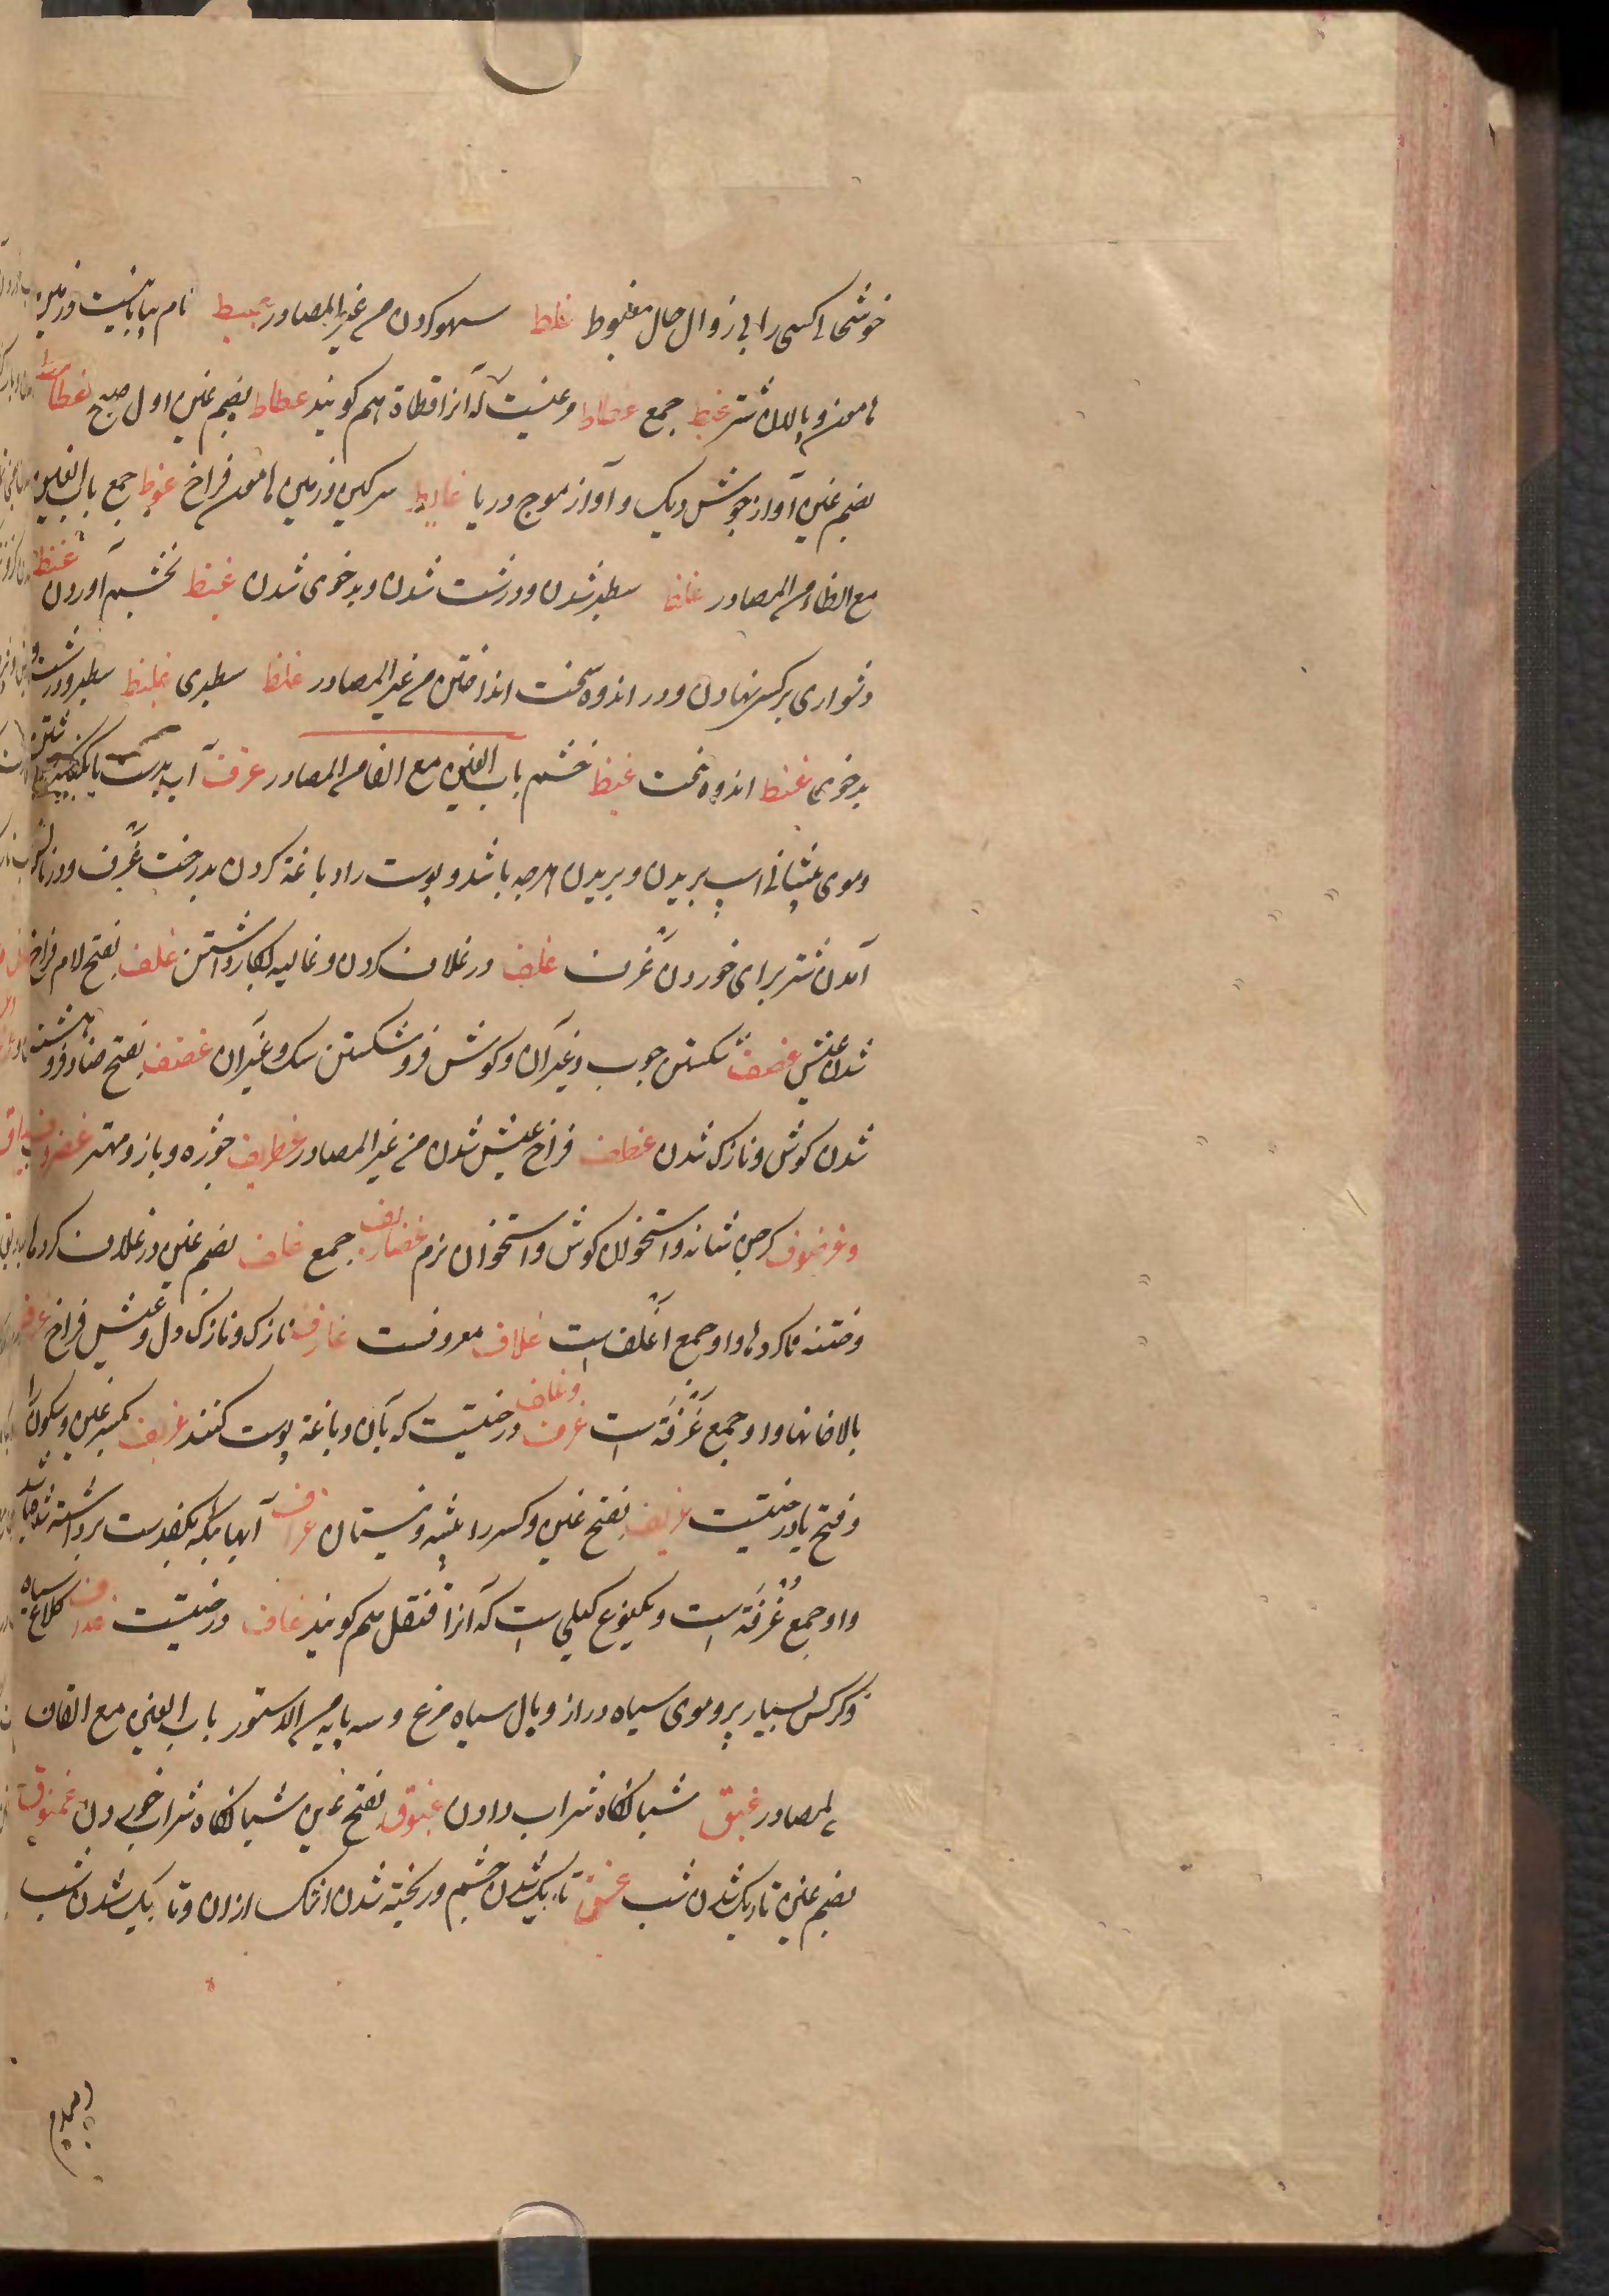 خوشحالی کسی را بی زوال حال مغبوط غلط سهو کردن من غیر المصادر غبیط نام بیابانیست و زمین
هامون و پالان شتر غبط جمع غطاط مرغیست که آنرا قطاة هم کویند غطاط بضم غین اول صبح غطامط
بضم غین آواز جوش دیک و آواز موج دریا غایط سرکین و زمین هامون فراخ غوط جمع باب الغین
مع الظاء من المصادر غلظ سطبر شدن و درشت شدن و بد خوی شدن غیظ بخشم آوردن غنظ
دشواری بر کسی نهادن و در اندوه سخت انداختن من غیر المصادر غلظ سطبری غلیظ سطبر و درشت و
بد خوی غنظ اندوه سخت غیظ خشم باب الغین مع الفا من المصادر غرف آب بدست یا بکفچه برداشتن
و موی پیشانی اسپ بریدن و بریدن هر چه باشد و پوست را دباغة کردن بدرخت غرف و در نالش
آمدن شتر برای خوردن غرف غلف در غلاف کردن و غالیه بکار داشتن غلف بفتح لام فراخ
شدن عیش غضف شکستن چوب و غیر آن و کوش فرو شکستن سک و غیر آن غضف بفتح ضاد فرو هشته
شدن کوش و نازک شدن غطف فراخ عیش شدن من غیر المصادر غطریف خوزه و باز و مهتر غضروف
و غرضوف کرجن شانه و استخوان کوش و استخوان نرم غضاریف جمع غلف بضم غین در غلاف کردها
و ختنه ناکردها و او جمع اغلف است غلاف معروفست غارف نازک و نازک دل و عیش فراخ غرف
بالاخانها و او جمع غرفة است غرف و غلف درختیست که بآن دباغة پوست کنند غریف بکسر غین و سکون را
و فتح یا درختیست غریف بفتح غین و کسر را بیشه و نیستان غراف آبهاییکه بکفدست برداشته شد باشد
و او جمع غرفة است و یکنوع کیلی است که آنرا قنقل هم کویند غاف درختیست غدف کلاغ سیاه
و کرکس بسیار پر و موی سیاه دراز و بال سیاه مرغ و سه پایه من الدستور باب الغین مع القاف
من المصادر غبق شبانکاه شراب دادن غبوق بفتح غین شبانکاه شراب خوردن غسوق
بضم غین تاریک شدن شب غسق تاریک شدن چشم و ریخته شدن اشک ازان و تاریک شدن شب